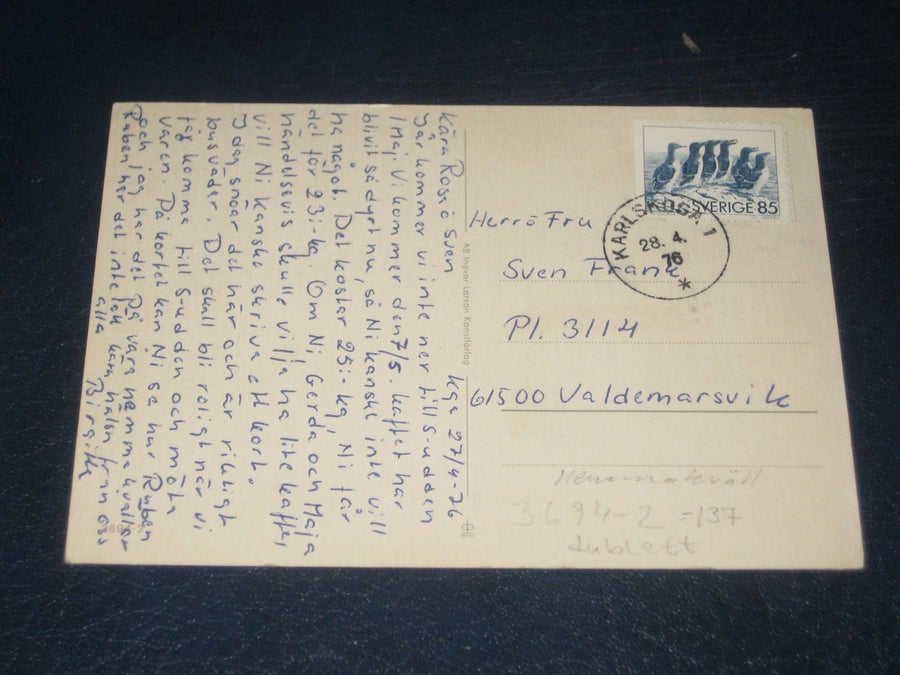 Kga 27/4-76
Kära Rosa o Sven
I år kommer vi inte ner till S-udden
1 Maj. Vi kommer den 7/5. Kaffet har
blivit så dyrt nu, så Ni kanske inte vill
ha något. Det kostar 25:- kg, Ni får
det för 23:- kg. Om Ni Gerda och Maja
händelsevis skulle vilja ha lite kaffe,
vill Ni kanske skriva ett kort.
I dag snöar det här och är riktigt
busväder. Det skall bli roligt när vi
får komma till S-udden och möta
våren. På kortet kan Ni se hur Ruben
och jag har det på våra hemmakvällar
Ruben har det inte
kära hälsn från oss
alla Birgitta
AB Ingvar Larson Konstförlag
SVERIGE 85
KARLSKOGA 1
28. 4.
76
Herr o Fru
Sven Frank
Pl. 3114
61500 Valdemarsvik
Hemmakväll
3694-2 =137
dublett